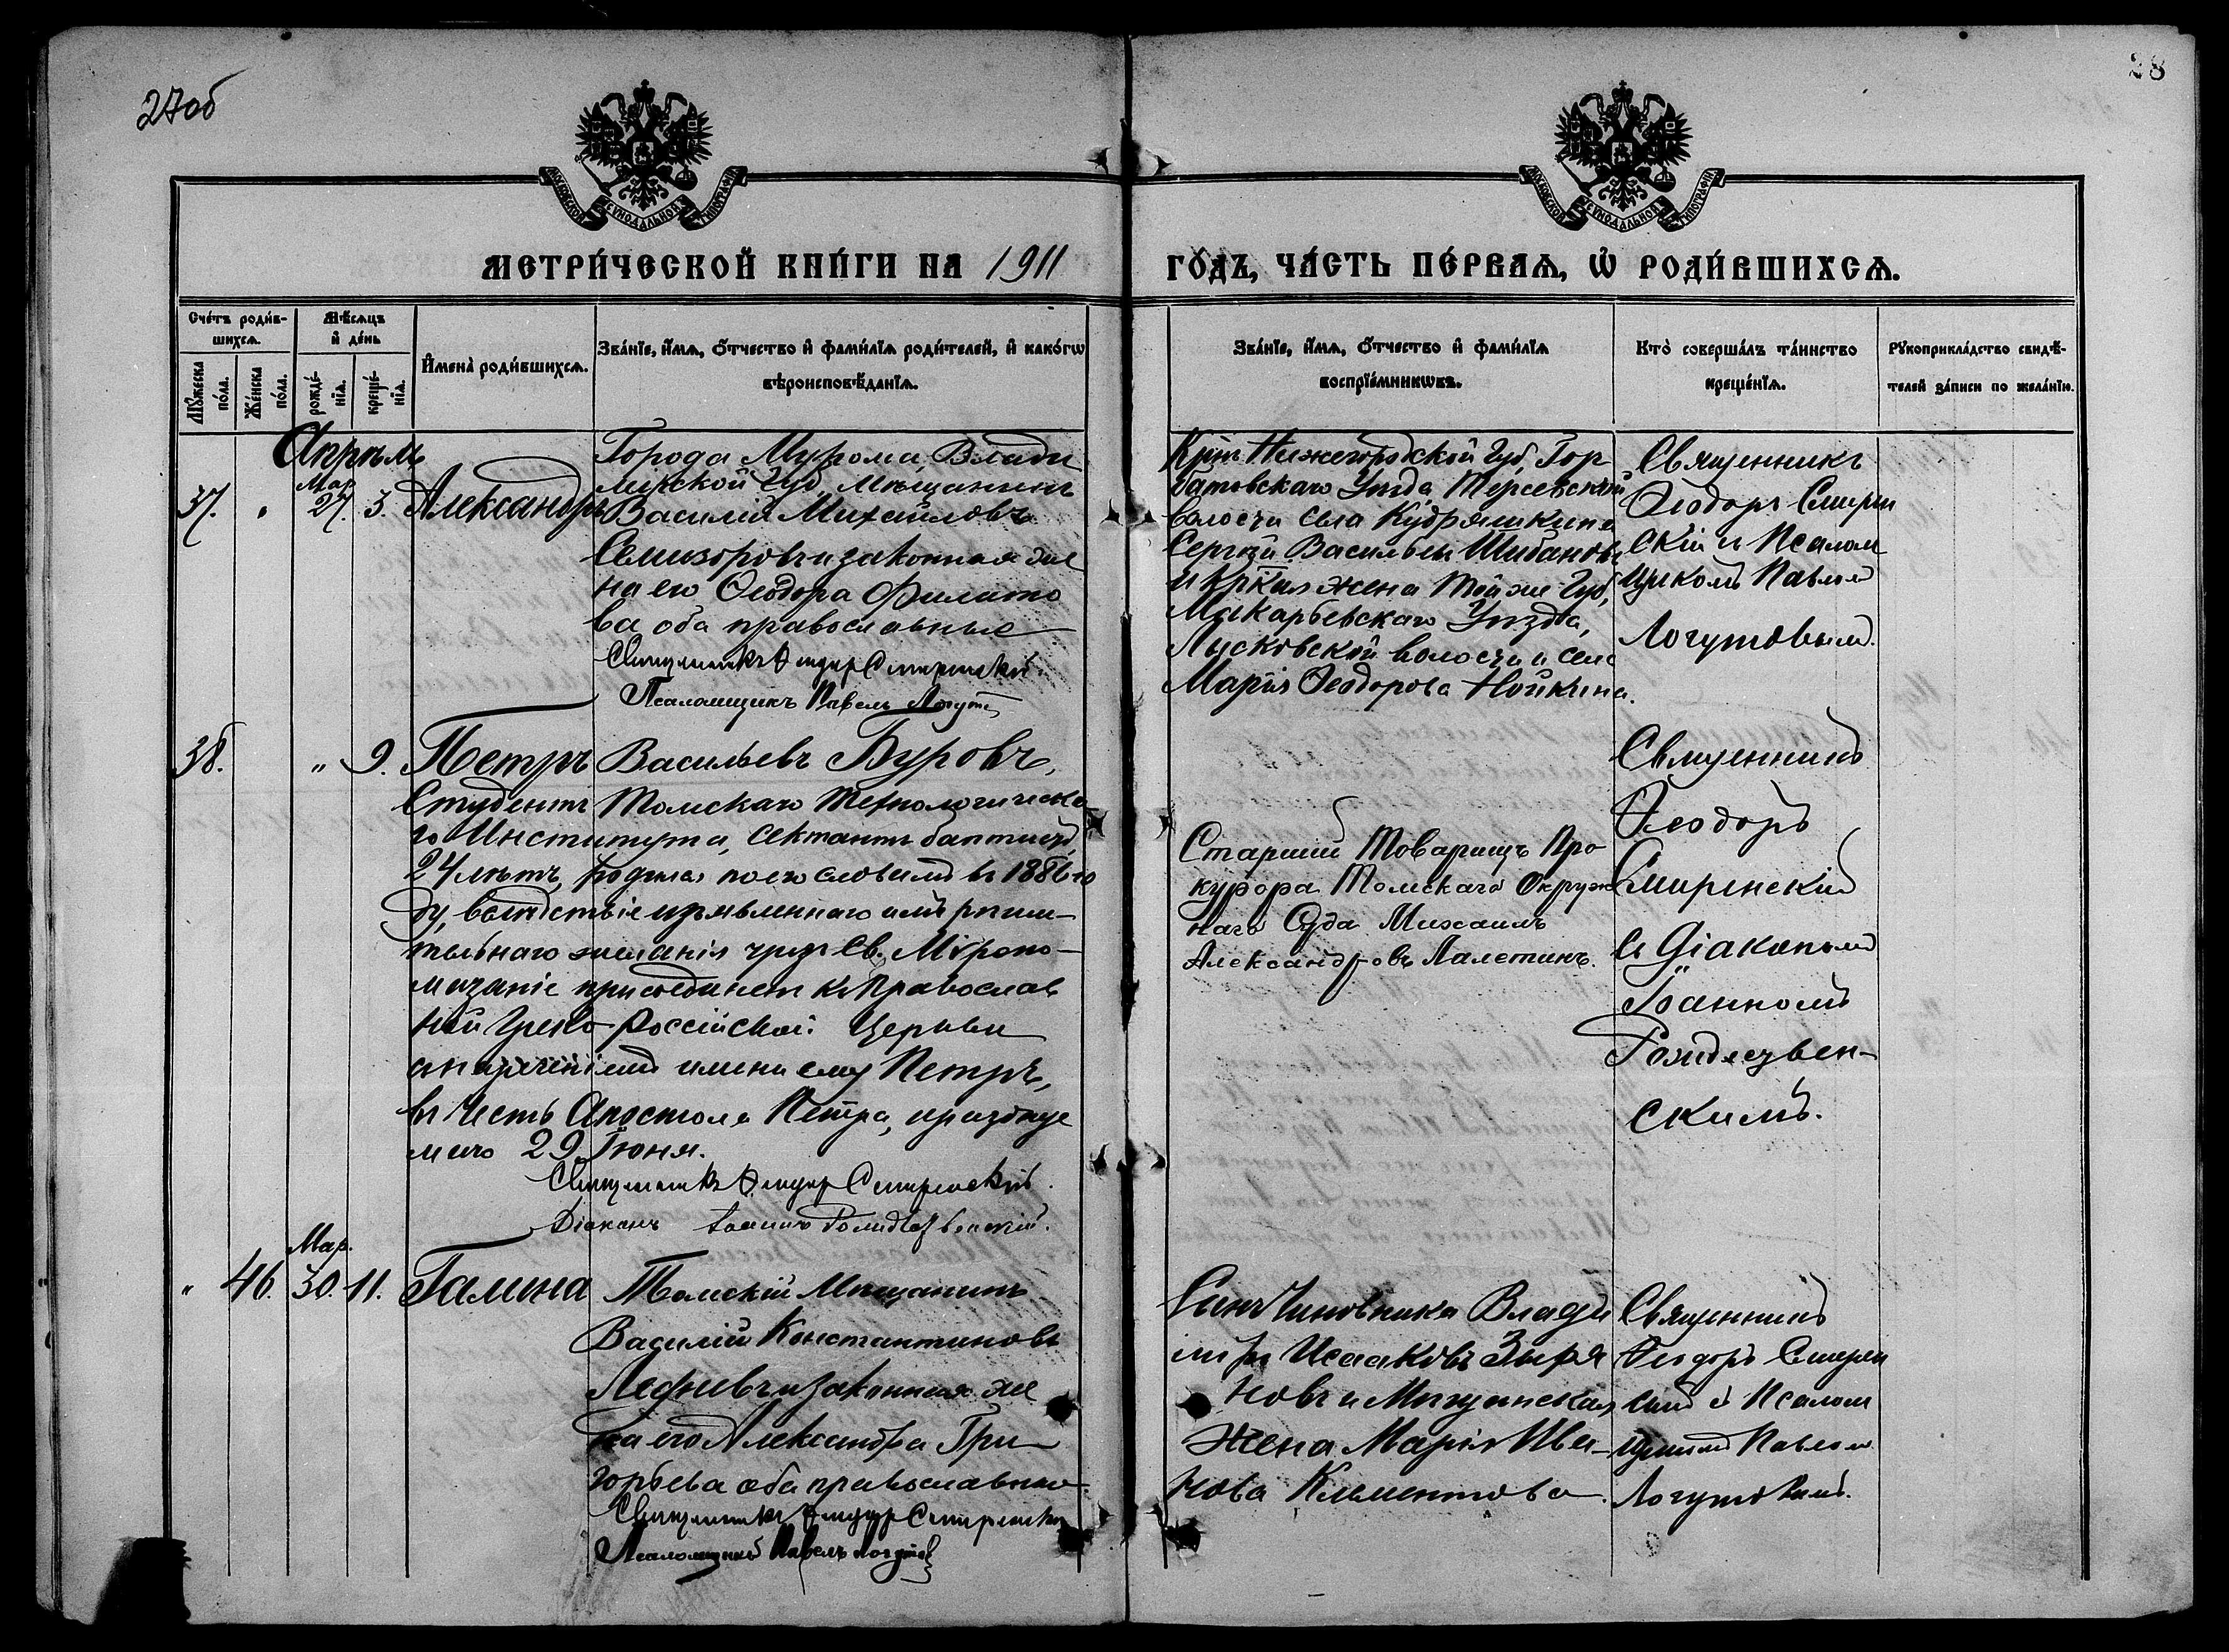 27об
28
МОСКОВСКОЙ СѴНОДАЛЬНОЙ ТИПОГРАФІИ
МОСКОВСКОЙ СѴНОДАЛЬНОЙ ТИПОГРАФІИ
МЕТРИ́ЧЕСКОЙ КНИ́ГИ НА 1911
ГО́ДЪ, ЧА́СТЬ ПЕ́РВАѦ, Ѡ҆ РОДИ́ВШИХСѦ.
Сче́тъ роди́в-
шихсѧ.
Мꙋ́жеска по́ла.
Же́нска по́ла.
Мѣ́сѧцъ
и҆ де́нь
рожде́-
нїѧ.
креще́-
нїѧ.
И҆мена̀ роди́вшихсѧ.
Зва́нїе, и҆́мѧ, ѻ҆́тчество и҆ фами́лїѧ роди́телей, и҆ како́гѡ
вѣроисповѣ́данїѧ.
Зва́нїе, и҆́мѧ, ѻ҆́тчество и҆ фами́лїѧ
воспрїе́мникѡвъ.
Кто̀ соверша́лъ та́инство
креще́нїѧ.
Рꙋкоприкла́дство свидѣ́-
телей за́писи по жела́нїю.
Апрѣль
Мар.
37. " 27. 3. Александръ
Города Мурома, Влади
мирской Губ, Мѣщанинъ
Василій Михайловъ
Семизоровъ и законная же
на его Ѳеодора Филато
ва оба православные
Священникъ Ѳеодоръ Смиренскій
Псаломщикъ Павелъ Логут
Кр͠нъ Нижегородской Губ, Гор
батовскаго Уѣзда
волости села Кудряшкина
Сергѣй Васильевъ Шибановъ
и кр͠кая жена той же Губ,
Макарьевскаго Уѣзда,
Лысковской волости и села
Марія Ѳеодорова
Священникъ
Ѳеодоръ Смирен
скій и Псалом
щикомъ Павломъ
Логутовымъ.
38. " 9. Петръ Васильевъ Буровъ,
Студентъ Томскаго Технологическа
го Института, сектантъ баптистъ,
24 лѣтъ, родился по его словамъ въ 1886 го
ду, вслѣдствіе изъявленнаго имъ рѣши-
тельнаго желанія чрезъ Св. Мѵропо-
мазаніе присоединенъ къ Православ
ной Греко-Россійской Церкви
съ нареченіемъ имени ему Петръ,
въ честь Апостола Петра, празднуе
маго 29 Іюня.
Священникъ Ѳеодоръ Смиренскій.
Діаконъ Іоаннъ Рождественскій.
Старшій Товарищъ Про
курора Томскаго Окруж
наго Суда Михаилъ
Александровъ Палетинъ.
Священникъ
Ѳеодоръ
Смиренскій
съ Діакономъ
Іоанномъ
Рождествен-
скимъ.
Мар.
" 46. 30. 11. Галина
Томскій Мѣщанинъ
Василій Константиновъ
и законная же
на его Александра Гри
горьева оба православные
Священникъ Ѳеодоръ Смиренскій
Псаломщикъ Павелъ Логутовъ
Сынъ Чиновника Влади
міръ Исааковъ Зыря
новъ и Мѣщанская
жена Марія Ива-
нова Климентова.
Священникъ
Ѳеодоръ Смирен
скій съ Псалом
щикомъ Павломъ
Логутовымъ.